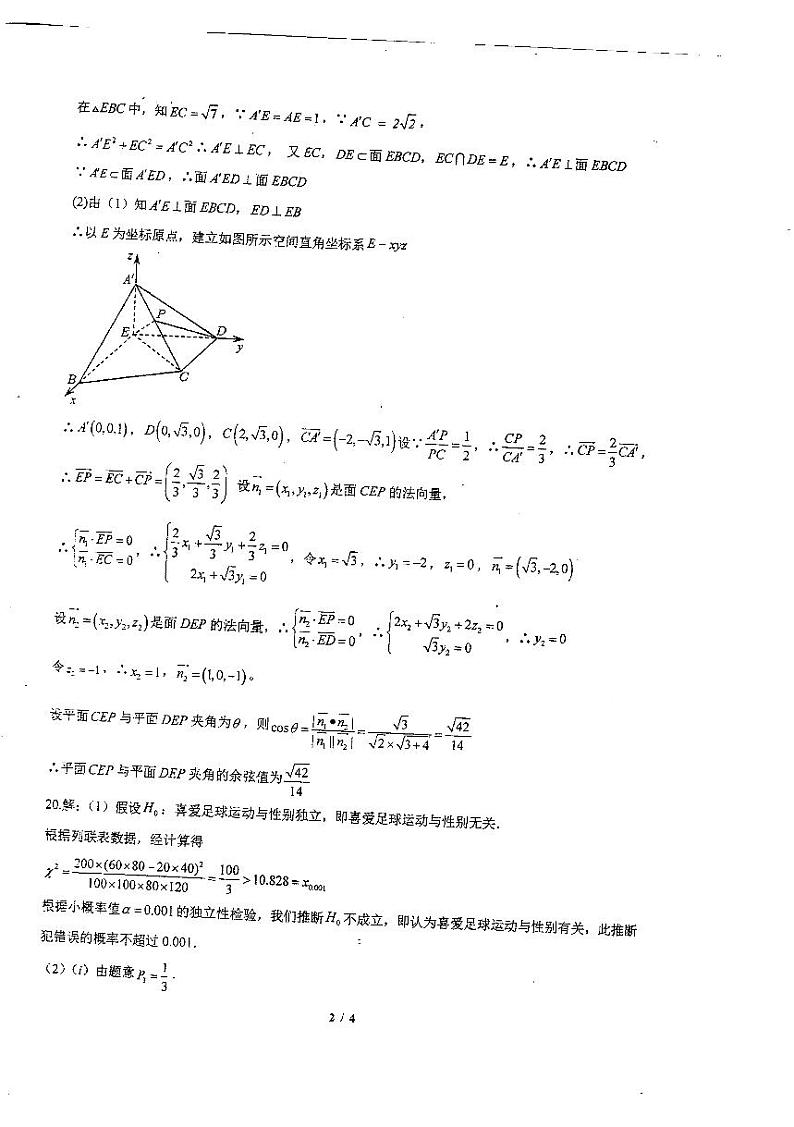 在△EBC中，知EC=√7，∵A'E=AE=1，∵A'C = 2√2，
∴A'E²+EC²=A'C²∴A'E⊥EC， 又EC，DE⊂面EBCD，EC∩DE=E，∴A'E⊥面EBCD
∵A'E⊂面A'ED，∴面A'ED⊥面EBCD
(2)由（1）知A'E⊥面EBCD，ED⊥EB
∴以E为坐标原点，建立如图所示空间直角坐标系E-xyz
z
A'
P
E
D
y
B
C
x
∴A'(0,0,1)，D(0,√3,0)，C(2,√3,0)，CA'=(-2,-√3,1)设∵A'P/PC=1/2，∴CP/CA'=2/3，∴CP=2/3CA'，
∴EP=EC+CP=(2/3,√3/3,2/3) 设n₁=(x₁,y₁,z₁)是面CEP的法向量，
∴{n₁·EP=0 n₁·EC=0，∴{2/3x₁+√3/3y₁+2/3z₁=0 2x₁+√3y₁=0，令x₁=√3，∴y₁=-2，z₁=0，n₁=(√3,-2,0)
设n₂=(x₂,y₂,z₂)是面DEP的法向量，∴{n₂·EP=0 n₂·ED=0，∴{2x₂+√3y₂+2z₂=0 √3y₂=0，∴y₂=0
令z₂=-1，∴x₂=1，n₂=(1,0,-1)。
设平面CEP与平面DEP夹角为θ，则cosθ=|n₁•n₂|/|n₁||n₂|=√3/√2×√3+4=√42/14
∴平面CEP与平面DEP夹角的余弦值为√42/14
20.解：（1）假设H₀：喜爱足球运动与性别独立，即喜爱足球运动与性别无关.
根据列联表数据，经计算得
χ²=200×(60×80-20×40)²/100×100×80×120=100/3>10.828=x₀.₀₀₁
根据小概率值α=0.001的独立性检验，我们推断H₀不成立，即认为喜爱足球运动与性别有关，此推断
犯错误的概率不超过0.001.
（2）（i）由题意P₃=1/3.
2 / 4